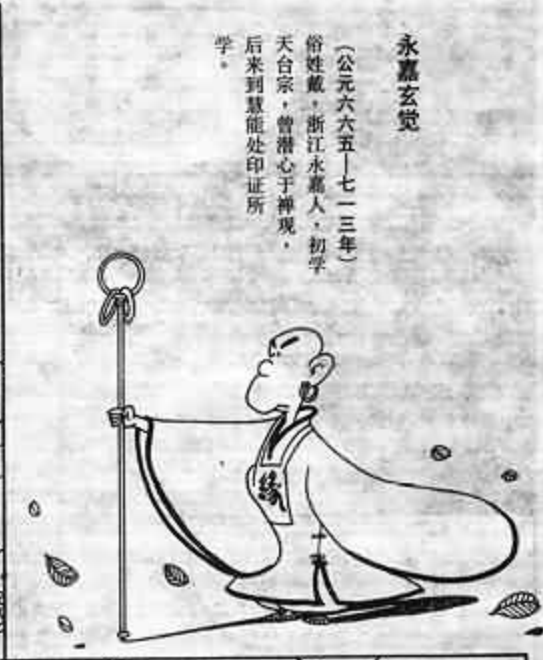 永嘉玄觉
（公元六六五—七一三年）
俗姓戴，浙江永嘉人，初学
天台宗，曾潜心于禅观，
后来到慧能处印证所
学。
缘